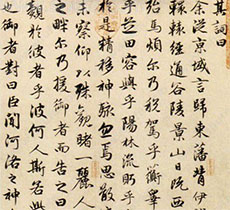 其詞曰
余從京域言歸東藩背伊
轘轅經通谷陵景山日既西
殆馬煩尔乃税駕乎蘅皋
乎芝田容與乎陽林流眄乎
於是精移神駭忽焉思散
未察仰以殊觀睹一麗人
之畔尔乃援御者而告之曰
覿於彼者乎彼何人斯若此
也御者對曰臣聞河洛之神